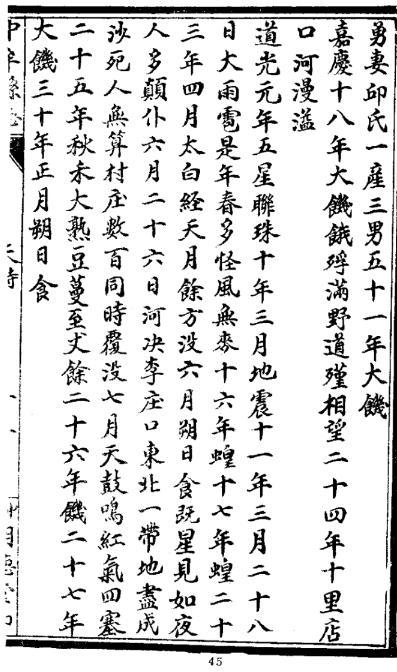 勇妻邱氏一產三男五十一年大饑
嘉慶十八年大饑餓殍滿野道殣相望二十四年十里店
口河漫溢
道光元年五星聯珠十年三月地震十一年三月二十八
日大雨雹是年春多怪風無麥十六年蝗十七年蝗二十
三年四月太白經天月餘方没六月朔日食既星見如夜
人多顛仆六月二十六日河决李庄口東北一帶地盡成
沙死人無算村庄數百同時覆没七月天鼓鳴紅氣四塞
二十五年秋禾大熟豆蔓至丈餘二十六年饑二十七年
大饑三十年正月朔日食
天時
45